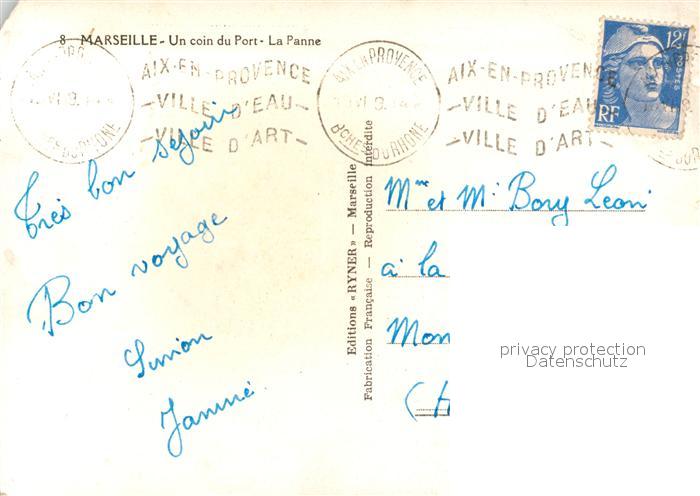 8 MARSEILLE - Un coin du Port - La Panne
AIX-EN-PROVENCE
—VILLE D'EAU—
—VILLE D'ART—
AIX EN PROVENCE
BCHES DU RHONE
AIX-EN-PROVENCE
—VILLE D'EAU
—VILLE D'ART—
12F
POSTES
RF
Très bon séjour
Bon voyage
Simion
Janine
Editions « RYNER » — Marseille
Fabrication Française — Reproduction Interdite
Mme et Mr Bory Léon
à la
Mon
(H
privacy protection
Datenschutz